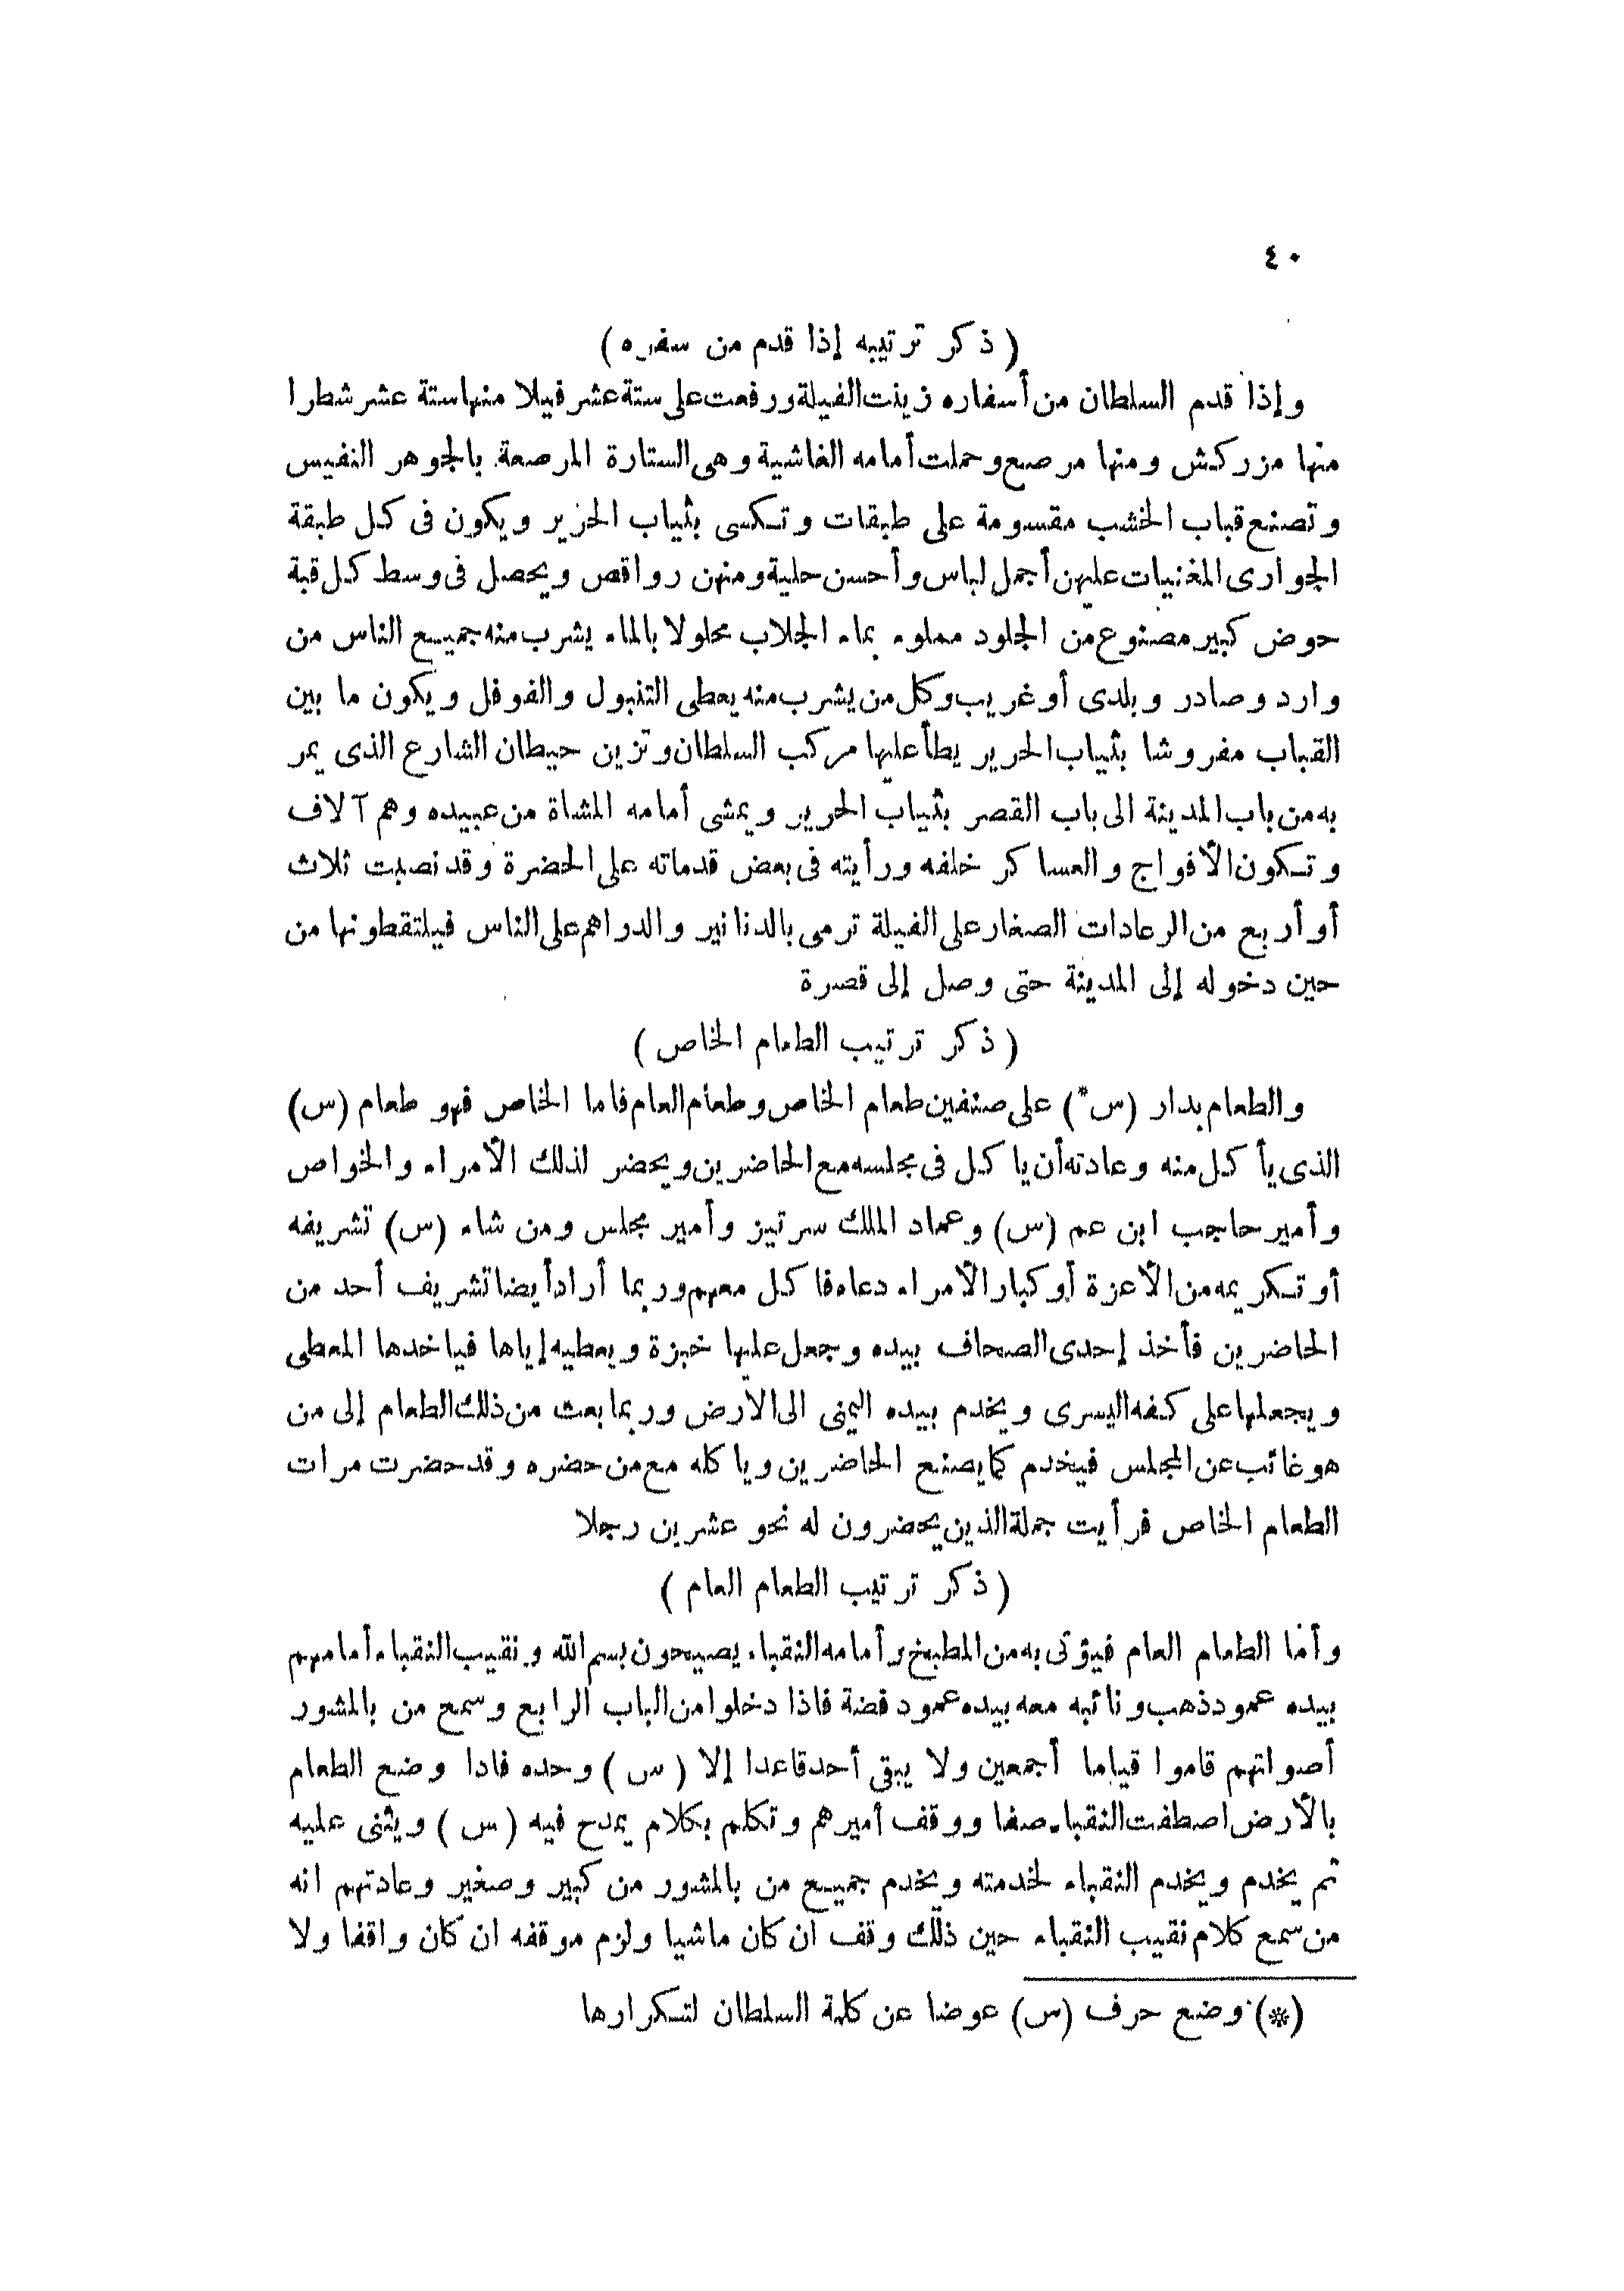 ٤٠
( ذكر ترتيبه إذا قدم من سفره )
وإذا قدم السلطان من أسفاره زينت الفيلة ورفعت على ستة عشر فيلا منها ستة عشر شطرا
منها مزركش ومنها مرصع وحملت أمامه الغاشية وهى الستارة المرصعة بالجوهر النفيس
وتصنع قباب الخشب مقسومة على طبقات وتكسى بثياب الحزير ويكون فى كل طبقة
الجوارى المغنيات عليهن أجمل لباس وأحسن حلية ومنهن رواقص ويحصل فى وسط كل قبة
حوض كبير مصنوع من الجلود مملوء بماء الجلاب محلولا بالماء يشرب منه جميع الناس من
وارد وصادر وبلدى أو غريب وكل من يشرب منه يعطى التنبول والفوفل ويكون ما بين
القباب مفروشا بثياب الحرير يطأ عليها مركب السلطان وتزين حيطان الشارع الذى يمر
به من باب المدينة الى باب القصر بثياب الحرير ويمشى أمامه المشاة من عبيده وهم آلاف
وتكون الأفواج والعساكر خلفه ورأيته فى بعض قدماته على الحضرة وقد نصبت ثلاث
أو أربع من الرعادات الصغار على الفيلة ترمى بالدنانير والدراهم على الناس فيلتقطونها من
حين دخوله إلى المدينة حتى وصل إلى قصرة
( ذكر ترتيب الطعام الخاص )
والطعام بدار (س*) على صنفين طعام الخاص وطعام العام فاما الخاص فهو طعام (س)
الذى يأكل منه وعادته أن ياكل فى مجلسه مع الحاضرين ويحضر لذلك الأمراء والخواص
وأمير حاجب ابن عم (س) وعماد الملك سرتيز وأمير مجلس ومن شاء (س) تشريفه
أو تكريمه من الأعزة أو كبار الأمراء دعاه فاكل معهم وربما أراد أيضا تشريف أحد من
الحاضرين فأخذ إحدى الصحاف بيده وجعل عليها خبزة ويعطيه إياها فياخدها المعطى
ويجعلها على كفه اليسرى ويخدم بيده اليمنى الى الأرض وربما بعث من ذلك الطعام إلى من
هو غائب عن المجلس فيخدم كما يصنع الحاضرين وياكله مع من حضره وقد حضرت مرات
الطعام الخاص فرأيت جملة الذين يحضرون له نحو عشرين رجلا
( ذكر ترتيب الطعام العام )
وأما الطعام العام فيؤتى به من المطبخ وأمامه النقباء يصيحون بسم الله ونقيب النقباء أمامهم
بيده عمود ذهب ونائبه معه بيده عمود فضة فاذا دخلوا من الباب الرابع وسمع من بالمشور
أصواتهم قاموا قياما أجمعين ولا يبقى أحد قاعدا إلا ( س ) وحده فادا وضع الطعام
بالأرض اصطفت النقباء صفا ووقف أميرهم وتكلم بكلام يمدح فيه ( س ) ويثنى عليه
ثم يخدم ويخدم النقباء لخدمته ويخدم جميع من بالمشور من كبير وصغير وعادتهم انه
من سمع كلام نقيب النقباء حين ذلك وقف ان كان ماشيا ولزم موقفه ان كان واقفا ولا
(*) وضع حرف (س) عوضا عن كلمة السلطان لتكرارها